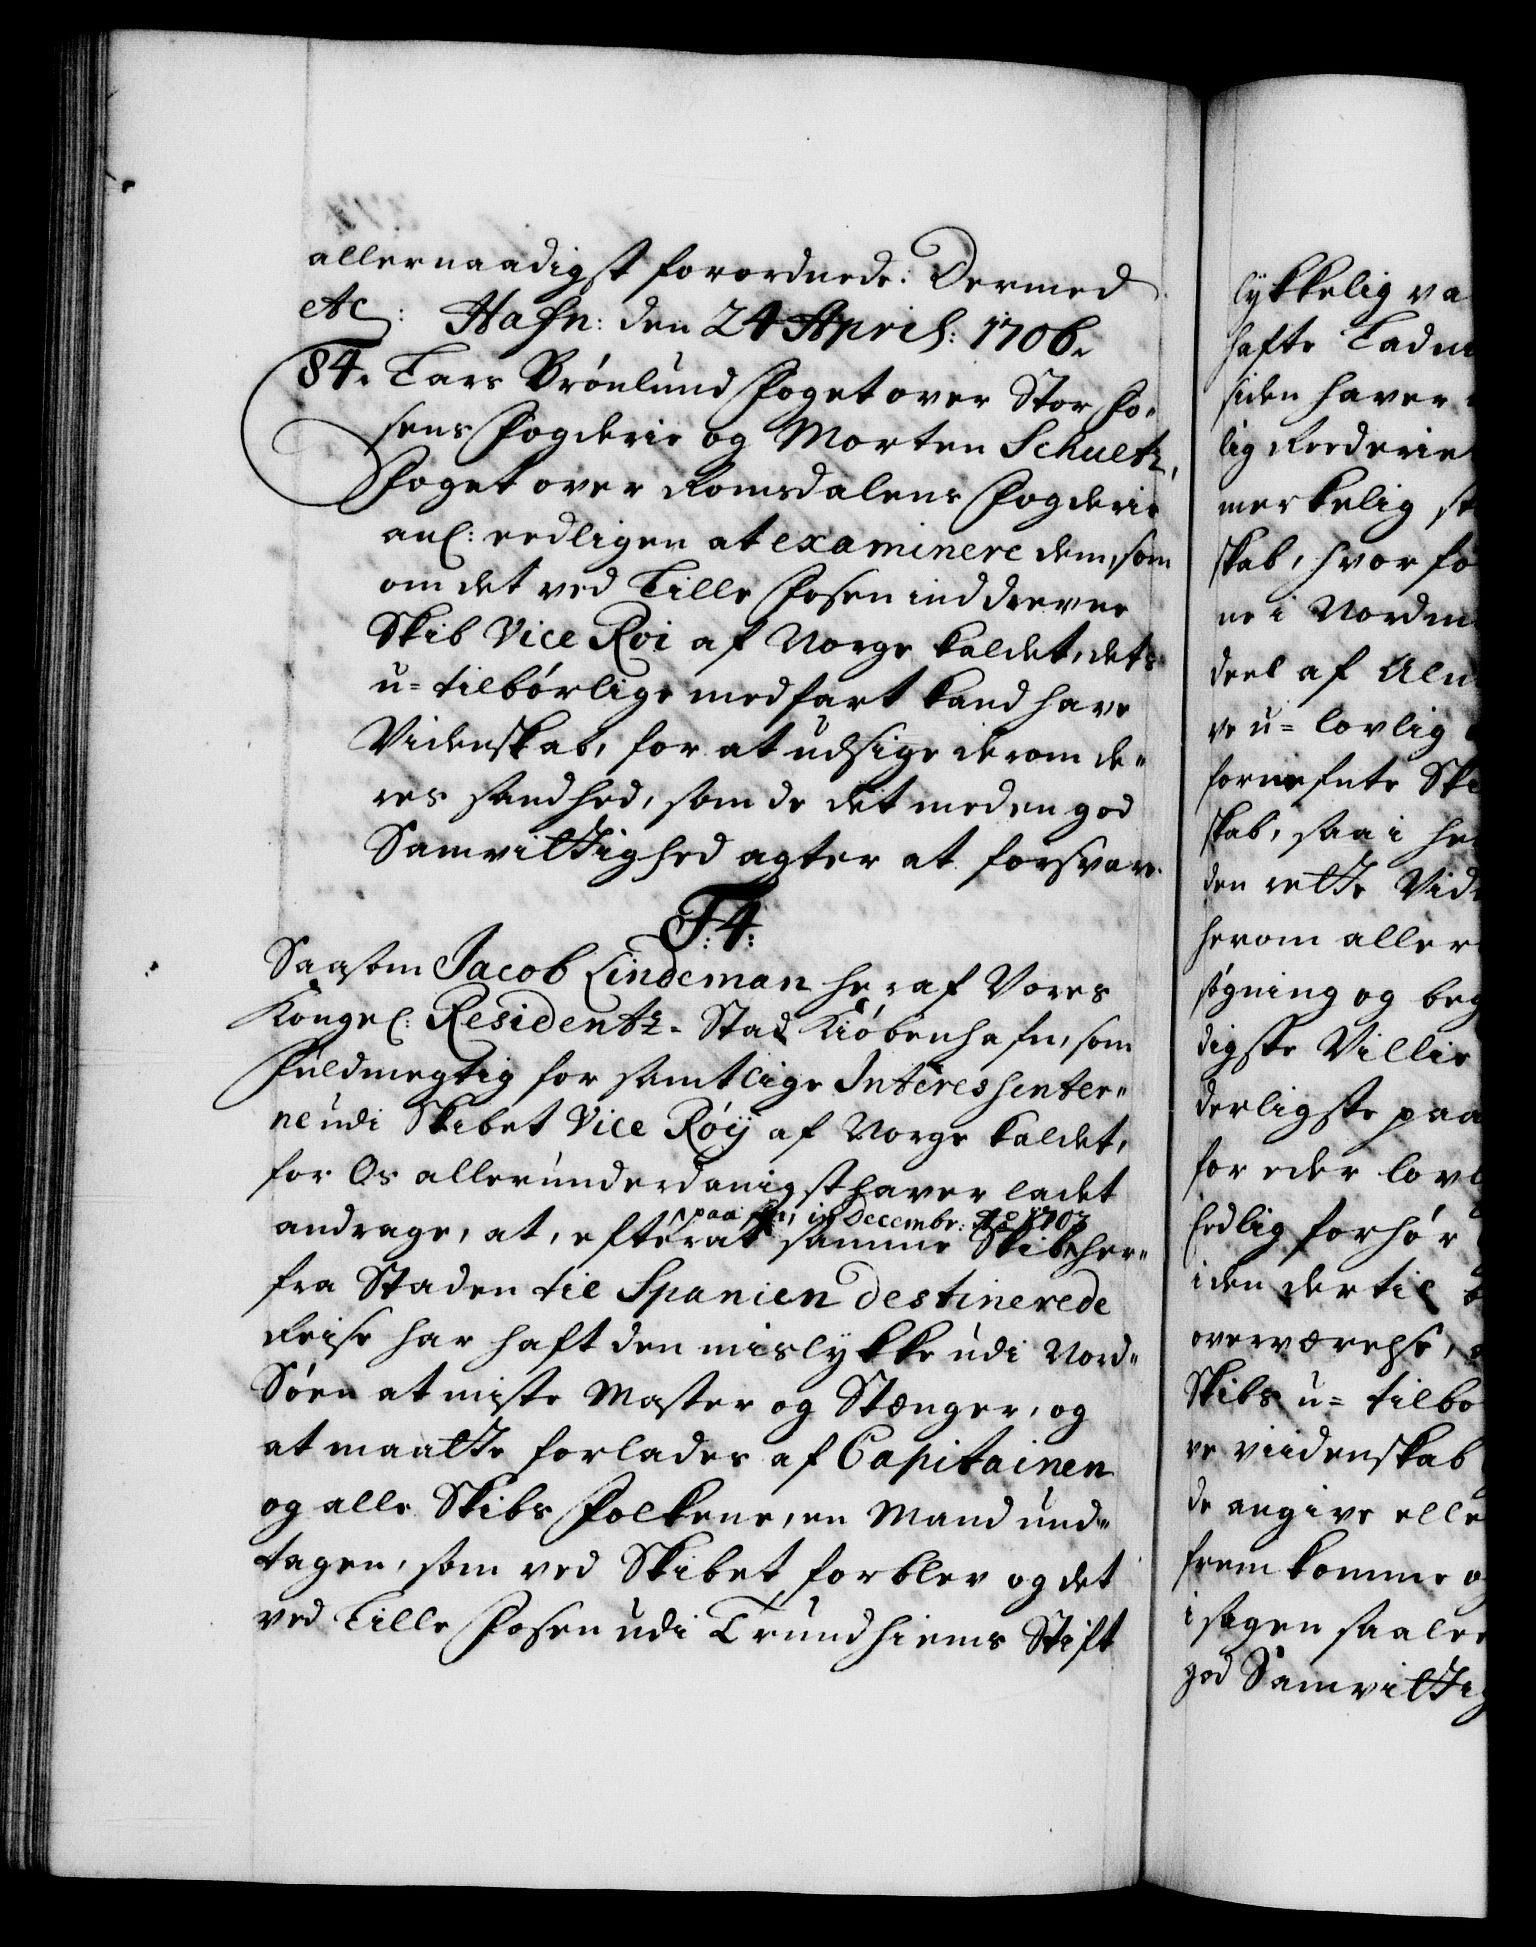 allernaadigst forordnede. Dermed
etc: Hafn: den 24 April: 1706.
84. Lars Brönlund Foget over Stor Fo-
sens Fogderie og Morten Schultz,
Foget over Romsdalens Fogderie
anl: eedligen at examinere dem, som
om det ved Lille Fosen inddrevne
Skib Vice Roi af Norge kaldet, dets
u-tilbörlige medfart kand have
Videnskab, for at udsige derom de-
res sandhed, som de det med en god
Samvittighed agter at forsvare.
F:4:
Saasom Jacob Lindeman her af Vores
Kongel: Residentz-Stad Kiöbenhafn, som
Fuldmegtig for samtlige Interessenter-
ne udi Skibet Vice Röy af Norge kaldet,
for Os allerunderdanigst haver ladet
andrage, at, efterat samme Skib her-
paa in Decembr: Ao 1703
fra Staden til Spanien destinerede
Reise har haft den mislykke udi Nord-
Söen at miste Master og Stænger, og
at maatte forlades af Capitainen
og alle Skibs Folkene, en Mand und-
tagen, som ved Skibet forblev og det
ved Lille Fosen udi Trundhiems Stift
lykkelig va
hafte Ladni
siden haver
lig Rederie
merkelig
skab, hvorfo
ne i Nordm
deel af Alm
ve u-lovlig
fornefnte Ski
skab, saa i he
den rette Vid
herom aller
sögning og beg
digste Villie
derligste paa
for eder lovl
hedlig forhör
i den der til
overværelse,
Skibs u-tilbö
ve viidenskab
de angive elle
frem komme o
i sagen saale
god Samvittig